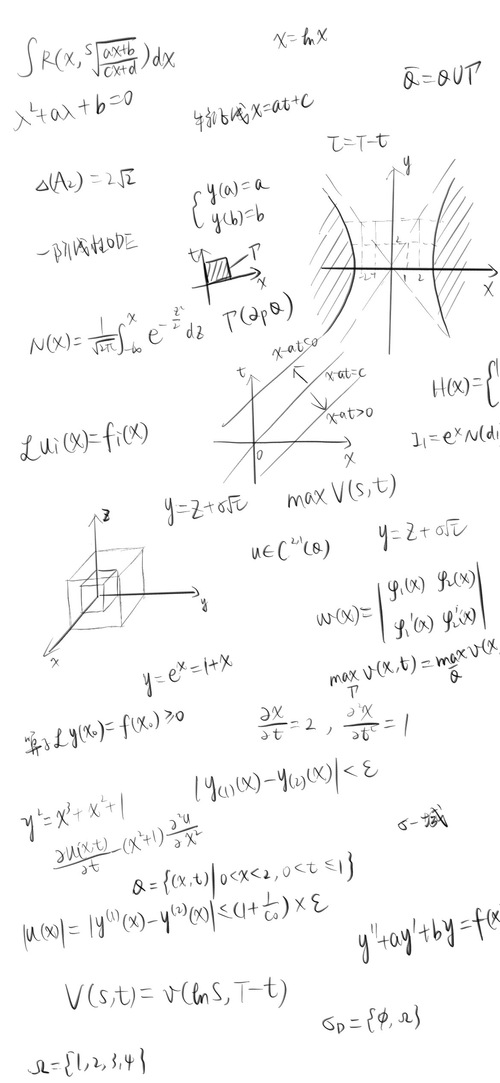 ∫R(x, ⁵√((ax+b)/(cx+d)))dx
x=lnx
Q̄=Q∪Γ
λ²+aλ+b=0
x=at+c
τ=T-t
Δ(A₂)=2√2
{ y(a)=a
y(b)=b
y
一阶线性ODE
t
Γ
x
-2 -1 1 2
x
N(x)=1/√(2π) ∫_{-∞}^{x} e^{-z²/2} dz
Γ(∂pQ)
x-at<0
t
x-at=c
x-at>0
0
x
H(x)={
I₁=eˣN(d
Lui(x)=fi(x)
y=z+σ√τ
max V(s,t)
z
y
x
u∈C²'¹(Q)
y=z+σ√τ
w(x)=|φ₁(x) φ₂(x)|
|φ₁'(x) φ₂'(x)|
y=eˣ=1+x
max_Γ v(x,t)=max_Q̄ v(x
Ly(x₀)=f(x₀)≥0
∂x/∂t=2, ∂²x/∂t²=1
|y₍₁₎(x)-y₍₂₎(x)|<ε
y²=x³+x²+1
∂u(x,t)/∂t-(x²+1)∂²u/∂x²
σ-域
Q={(x,t)|0<x<2,0<t≤1}
|u(x)|=|y⁽¹⁾(x)-y⁽²⁾(x)|≤(1+1/c₀)×ε
y''+ay'+by=f(x
V(s,t)=v(lnS,T-t)
σ_D={ϕ,Ω}
Ω={1,2,3,4}